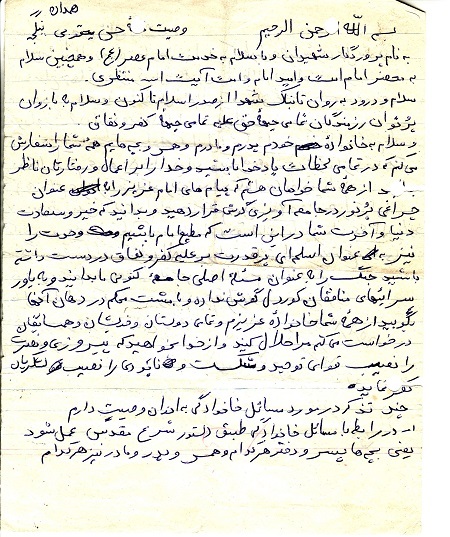 همدان
بسم الله الرحمن الرحیم وصیت نامهٔ حسن یعقوبی نیکجه
به نام پروردگار شهیدان و با سلام به خدمت امام عصر (عج) و همچنین سلام
به محضر امام امت و امید امام و امت آیت الله منتظری.
سلام و درود به روان تابناک شهدا از صدر اسلام تا کنون و سلام به بازوان
پرتوان رزمندگان تمامی جبهه حق علیه تمامی جبهه کفر و نفاق
و سلام به خانوادهٔ خودم پدرم و مادرم و همسر و بچه هایم همه شما را سفارش
می کنم که در تمامی لحظات یاد خدا باشید و خدا را بر اعمال و رفتارتان ناظر
بدانید از همه شما خواهان هستم که پیام های امام عزیز را به عنوان
چراغی پرنور در جامعه آویزه گوش قرار دهید و بدانید که خیر و سعادت
دنیا و آخرت شما در این است که مطیع امام باشیم وحدت را
نیز به عنوان اسلحه ای پرقدرت بر علیه کفر و نفاق در دست داشته
باشید جنگ را به عنوان مسئله اصلی جامعه کنونی ما بدانید و به یاوه
سرائیهای منافقان کوردل گوش نداده و با مشت محکم در دهان آنها
بکوبید از همهٔ شما خانوادهٔ عزیزم و تمامی دوستان و خویشان و همسایگان
درخواست می کنم مرا حلال کنید و از خدا بخواهید که پیروزی و نصرت
را نصیب قوای توحید و شکست و نابودی را نصیب لشکریان
کفر نماید
چند تذکر در مورد مسائل خانوادگی به عنوان وصیت دارم
۱- در رابطه با مسائل خانوادگی طبق دستور شرع مقدس عمل شود
یعنی بچه ها پسر و دختر هر کدام و همسر و پدر و مادر نیز هر کدام